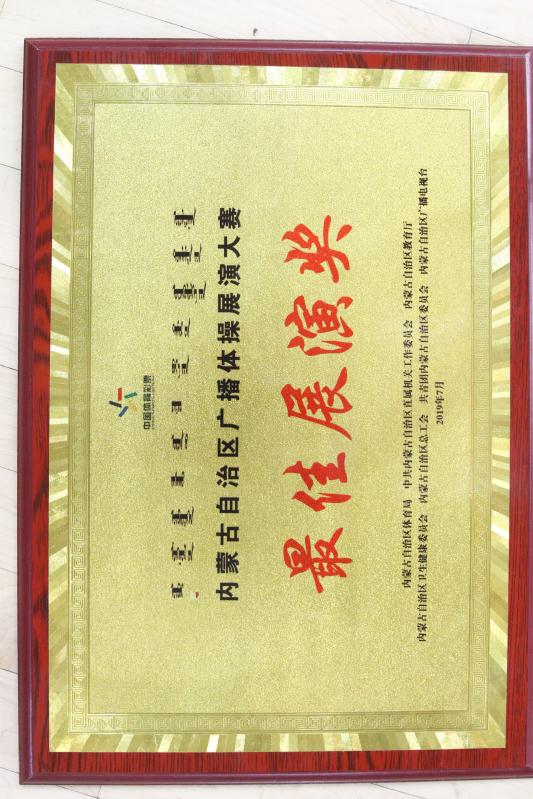 中国体育彩票
内蒙古自治区广播体操展演大赛
最佳展演奖
内蒙古自治区体育局 中共内蒙古自治区直属机关工作委员会 内蒙古自治区教育厅
内蒙古自治区卫生健康委员会 内蒙古自治区总工会 共青团内蒙古自治区委员会 内蒙古自治区广播电视台
2019年7月